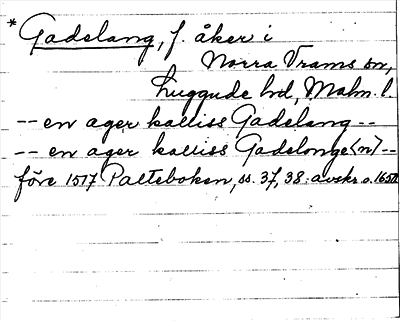 * Gadelang, f. åker i
Norra Vrams sn,
Luggude hd, Malm. l.
-- en ager kalliss Gadelang --
-- en ager kalliss Gadelonge<n> --
före 1517 Palteboken, ss. 37, 38. avskr. o. 1650